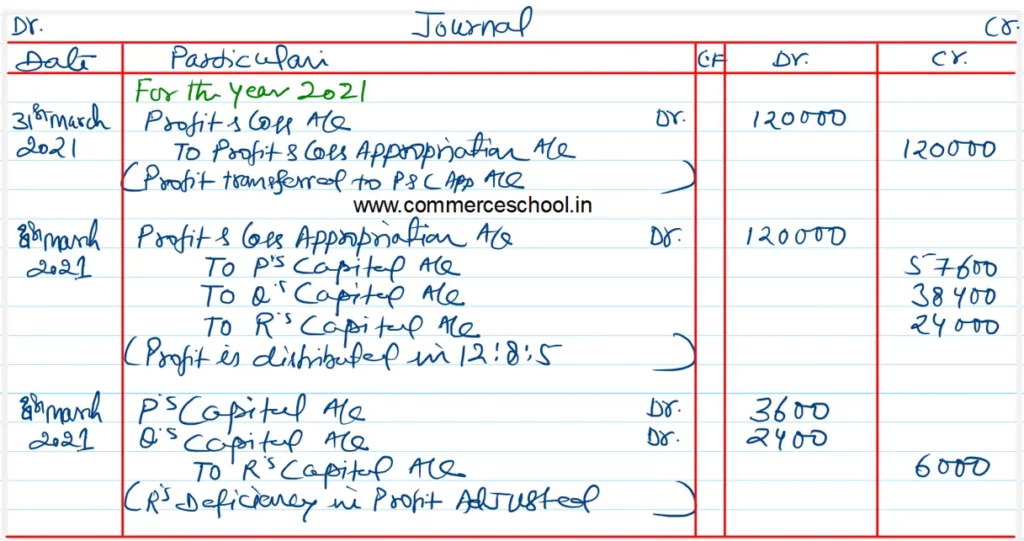 Dr. Journal Cr.
Date Particulars CF Dr. Cr.
For the year 2021
31st March Profit & Loss A/c Dr. 120000
2021 To Profit & Loss Appropriation A/c 120000
(Profit transferred to P&L App A/c)
www.commerceschool.in
31st March Profit & Loss Appropriation A/c Dr. 120000
2021 To P's Capital A/c 57600
To Q's Capital A/c 38400
To R's Capital A/c 24000
(Profit is distributed in 12:8:5)
31st March P's Capital A/c Dr. 3600
2021 Q's Capital A/c Dr. 2400
To R's Capital A/c 6000
(R's Deficiency in Profit Adjusted)